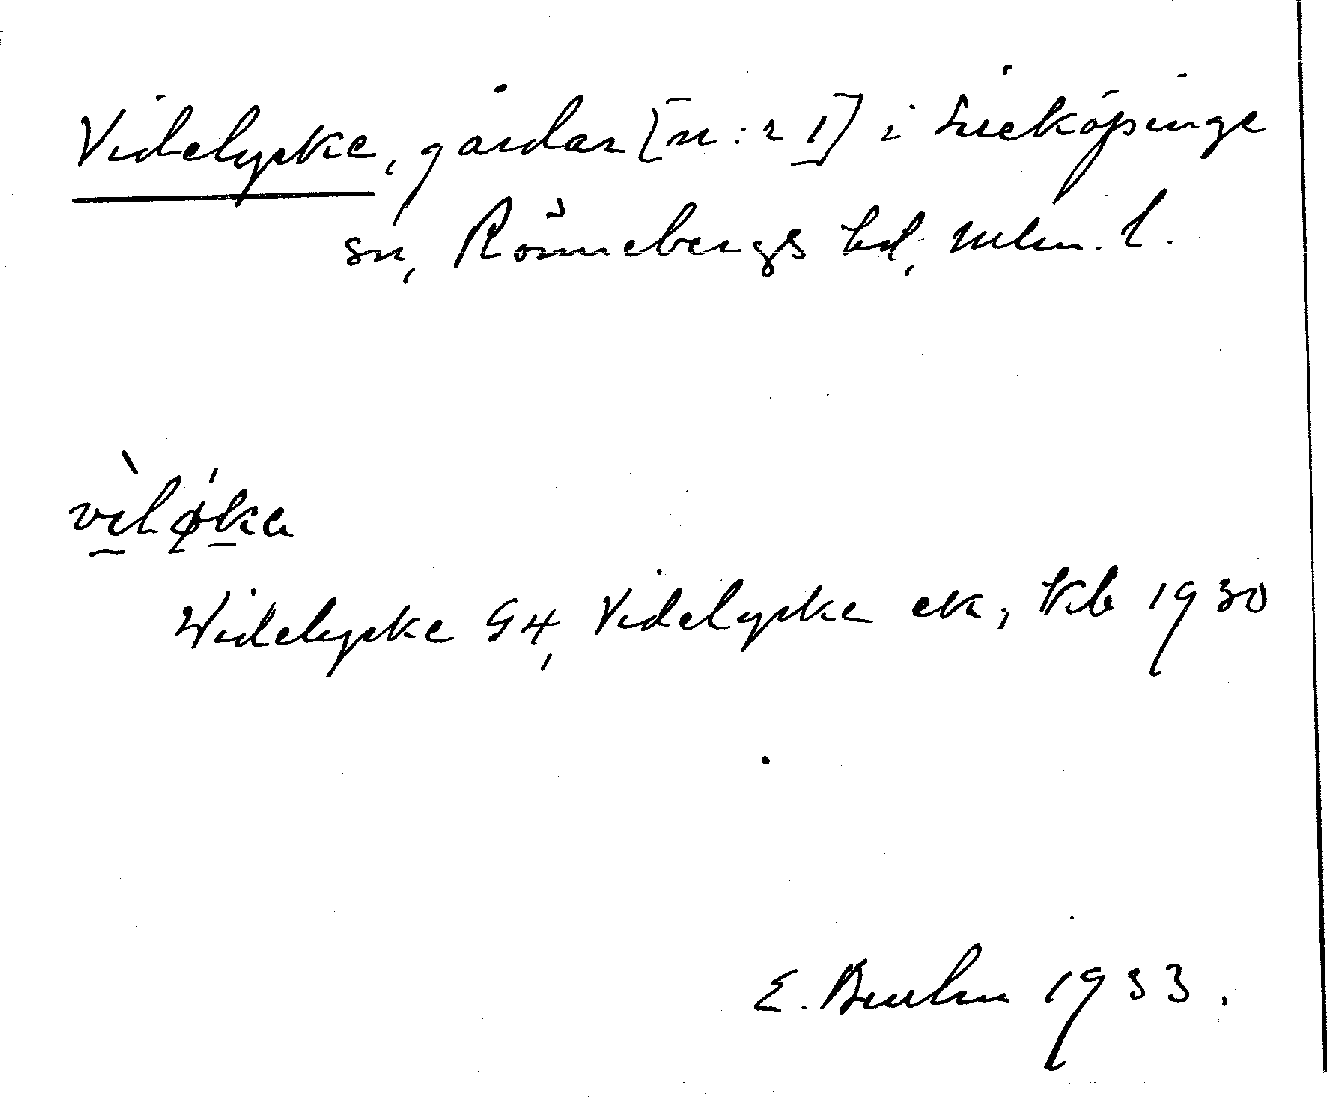 Videlycke, gårdar [n:r 1] i Sireköpinge
sn, Rönnebergs hd, Mlm. l.
vìløka
Widelycke G4, Videlycke ek, Kb 1930
E. 1933.